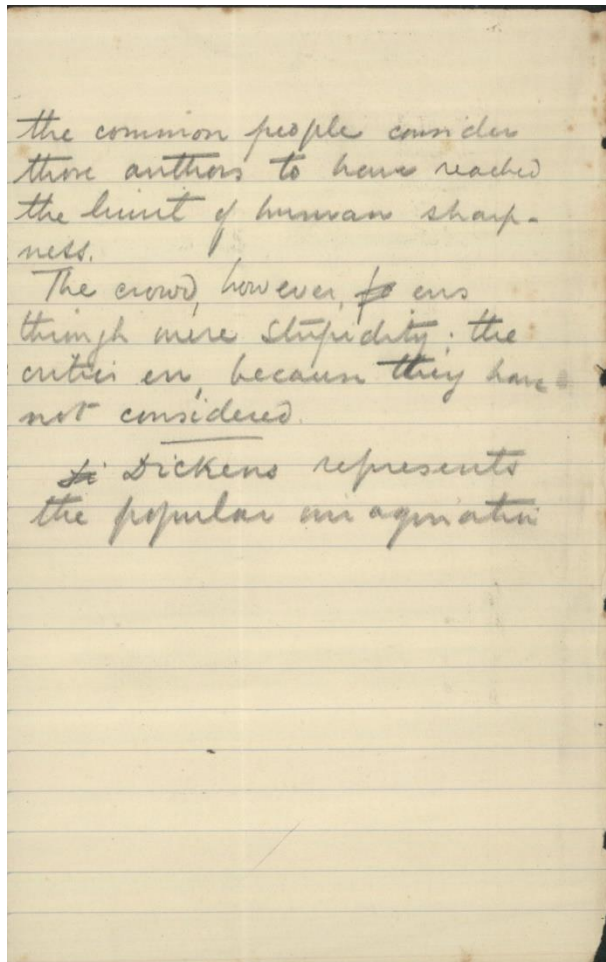 the common people consider
those authors to have reached
the limit of human sharp-
ness.
The crowd, however, errs
through mere stupidity; the
critics err, because they have
not considered.
Dickens represents
the popular imagination